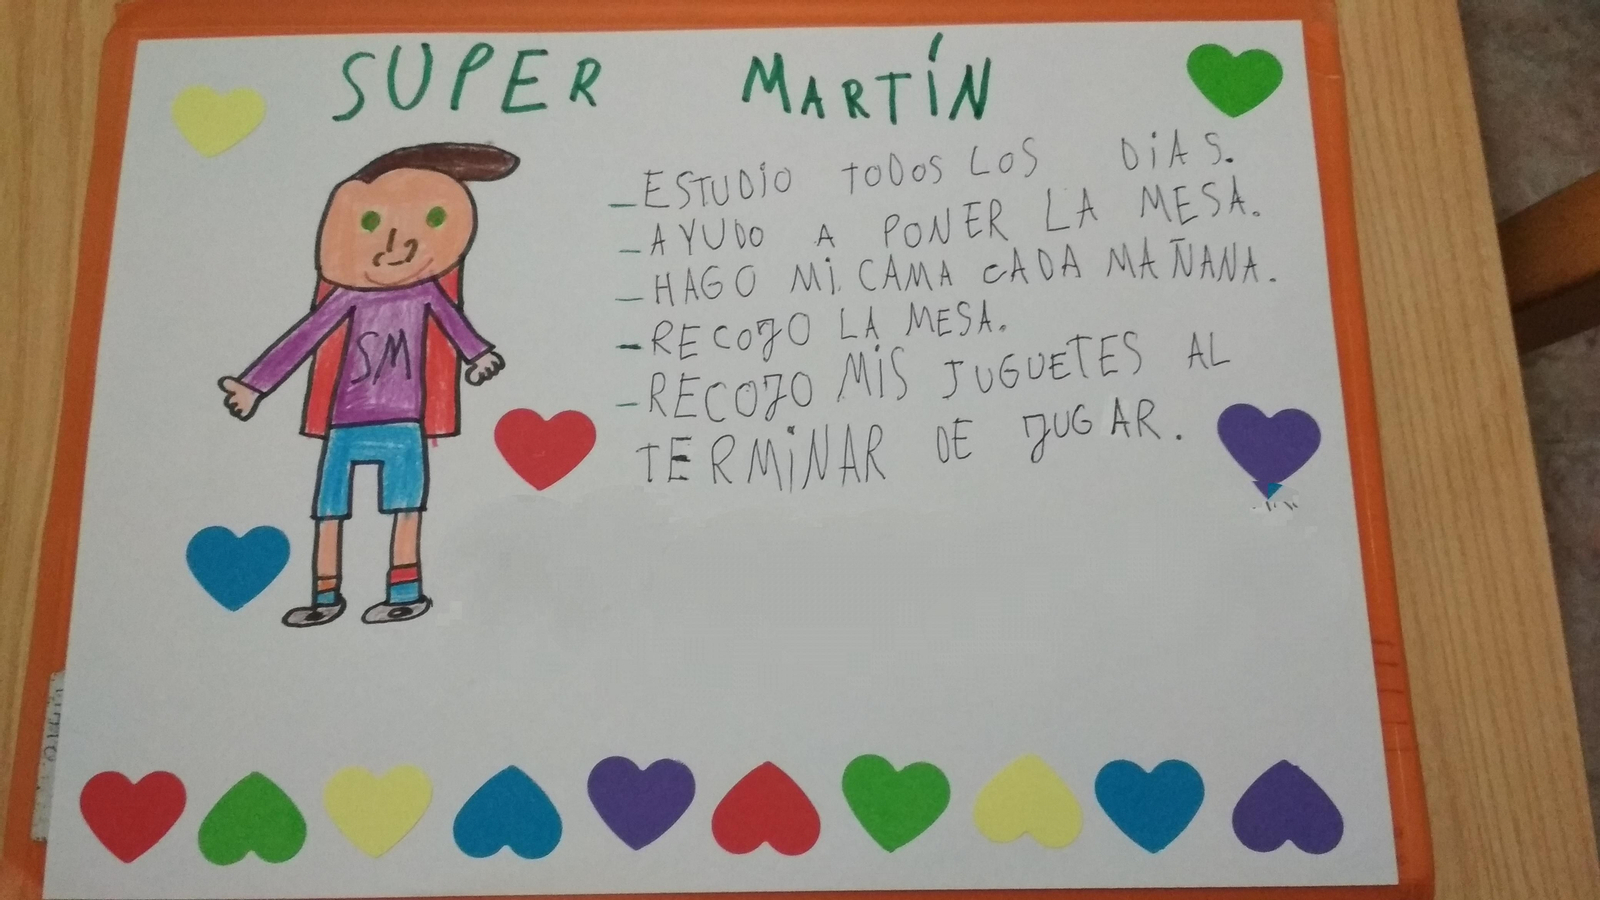 SUPER MARTÍN
- ESTUDIO TODOS LOS DiAS.
- AYUDO A PONER LA MESA.
- HAGO Mi CAMA CADA MAÑANA.
- RECOJO LA MESA.
- RECOJO MiS JUGUETES AL
TERMiNAR DE JUGAR.
SM